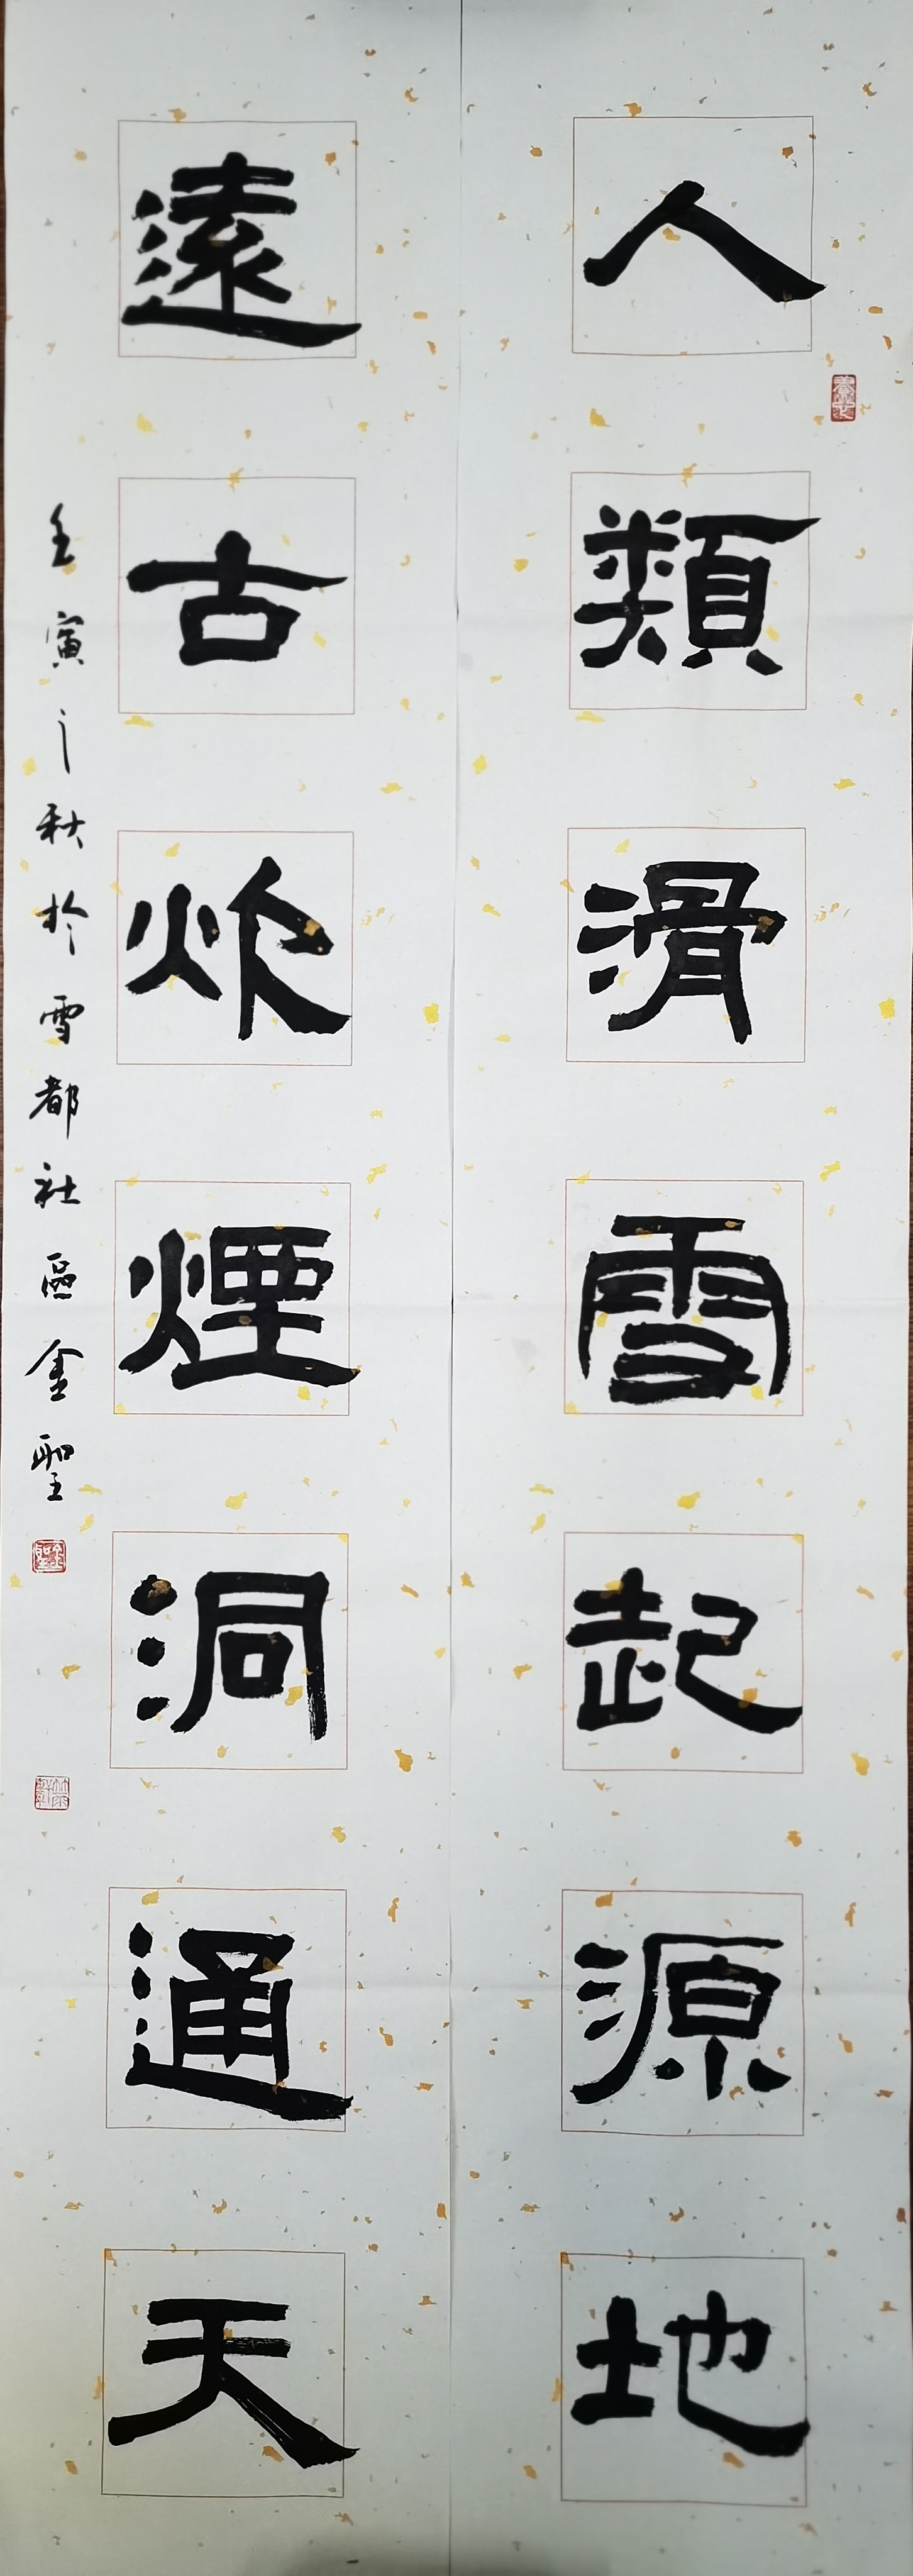 人類滑雪起源地
遠古炊煙洞通天
壬寅之秋於雪都社區金聖